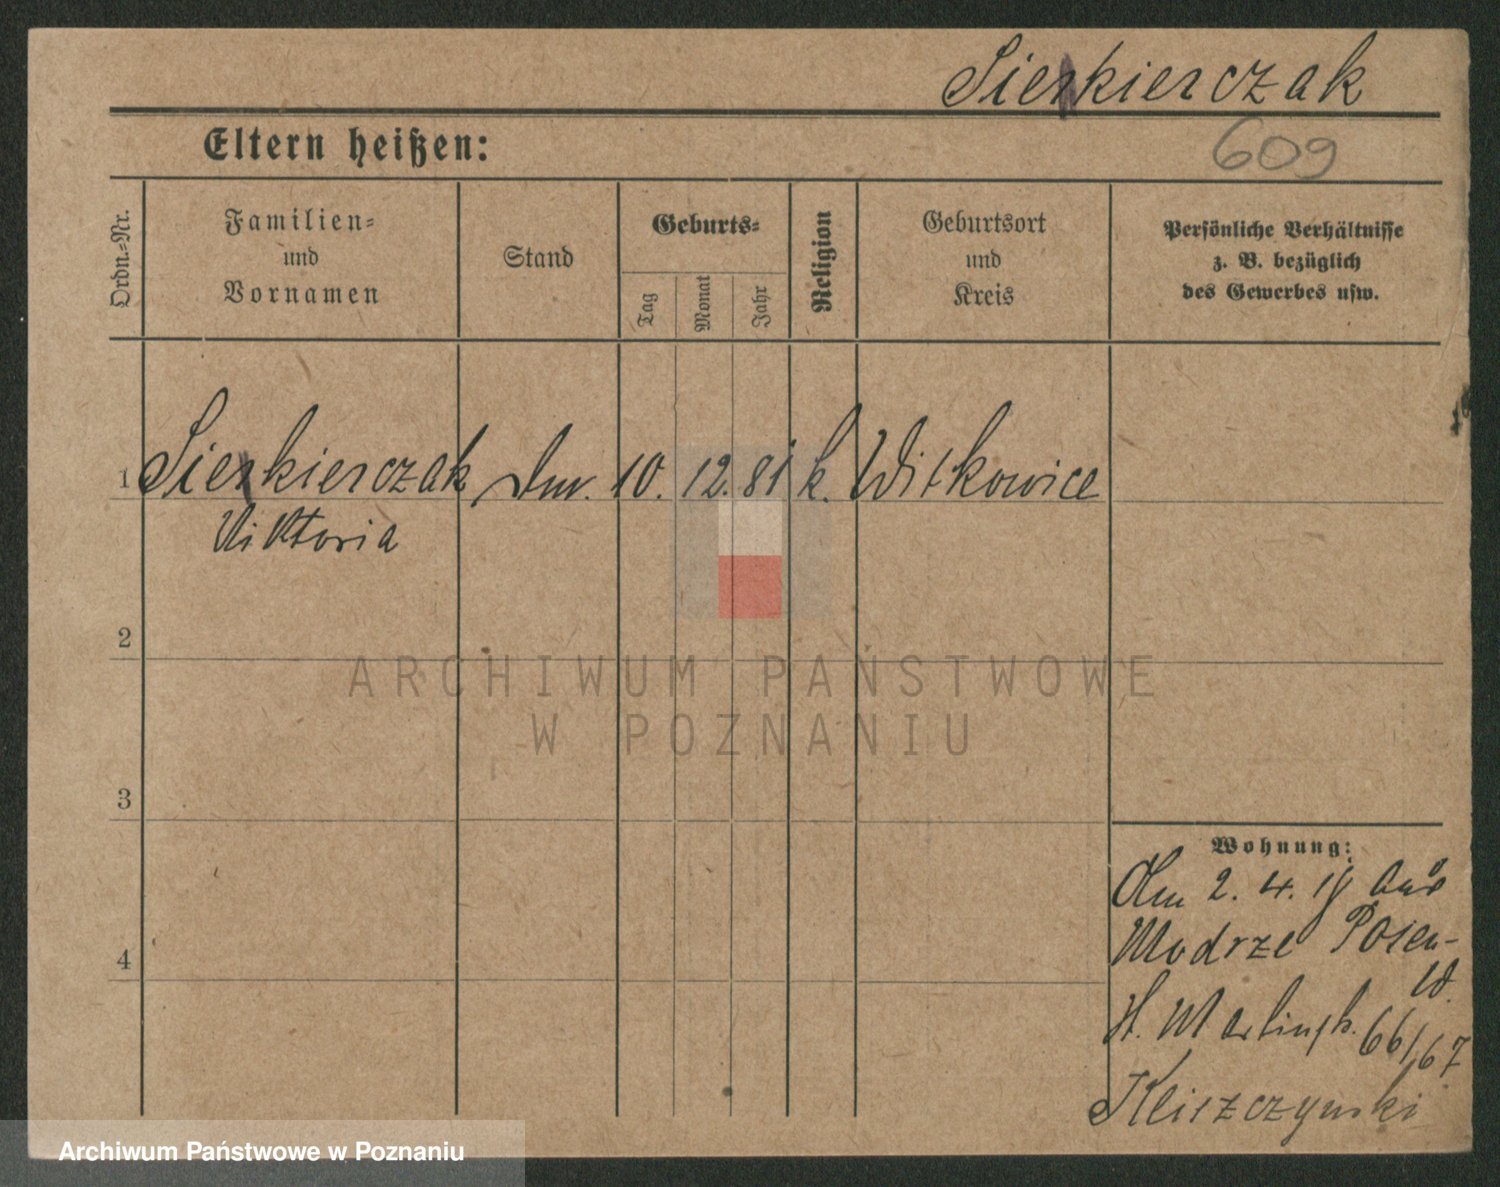 Siekierczak
609
Eltern heißen:
Ordn.-Nr.
Familien-
und
Vornamen
Stand
Geburts-
Tag
Monat
Jahr
Religion
Geburtsort
und
Kreis
Persönliche Verhältnisse
z. B. bezüglich
des Gewerbes usw.
1 Siekierczak 10. 12. 81 k. Witkowice
Viktoria
2
3
4
Wohnung:
Am 2. 4. aus
Modrze Posen-
W.
St. Martinstr. 66/67
Kliszczynski
ARCHIWUM PAŃSTWOWE
W POZNANIU
Archiwum Państwowe w Poznaniu